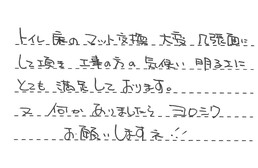 トイレ床のマット交換 大変 几張面に
して頂き 工事の方の気使い 明るさに
とても 満足しております。
又 何かありましたら ヨロシク
お願いしますネ!!